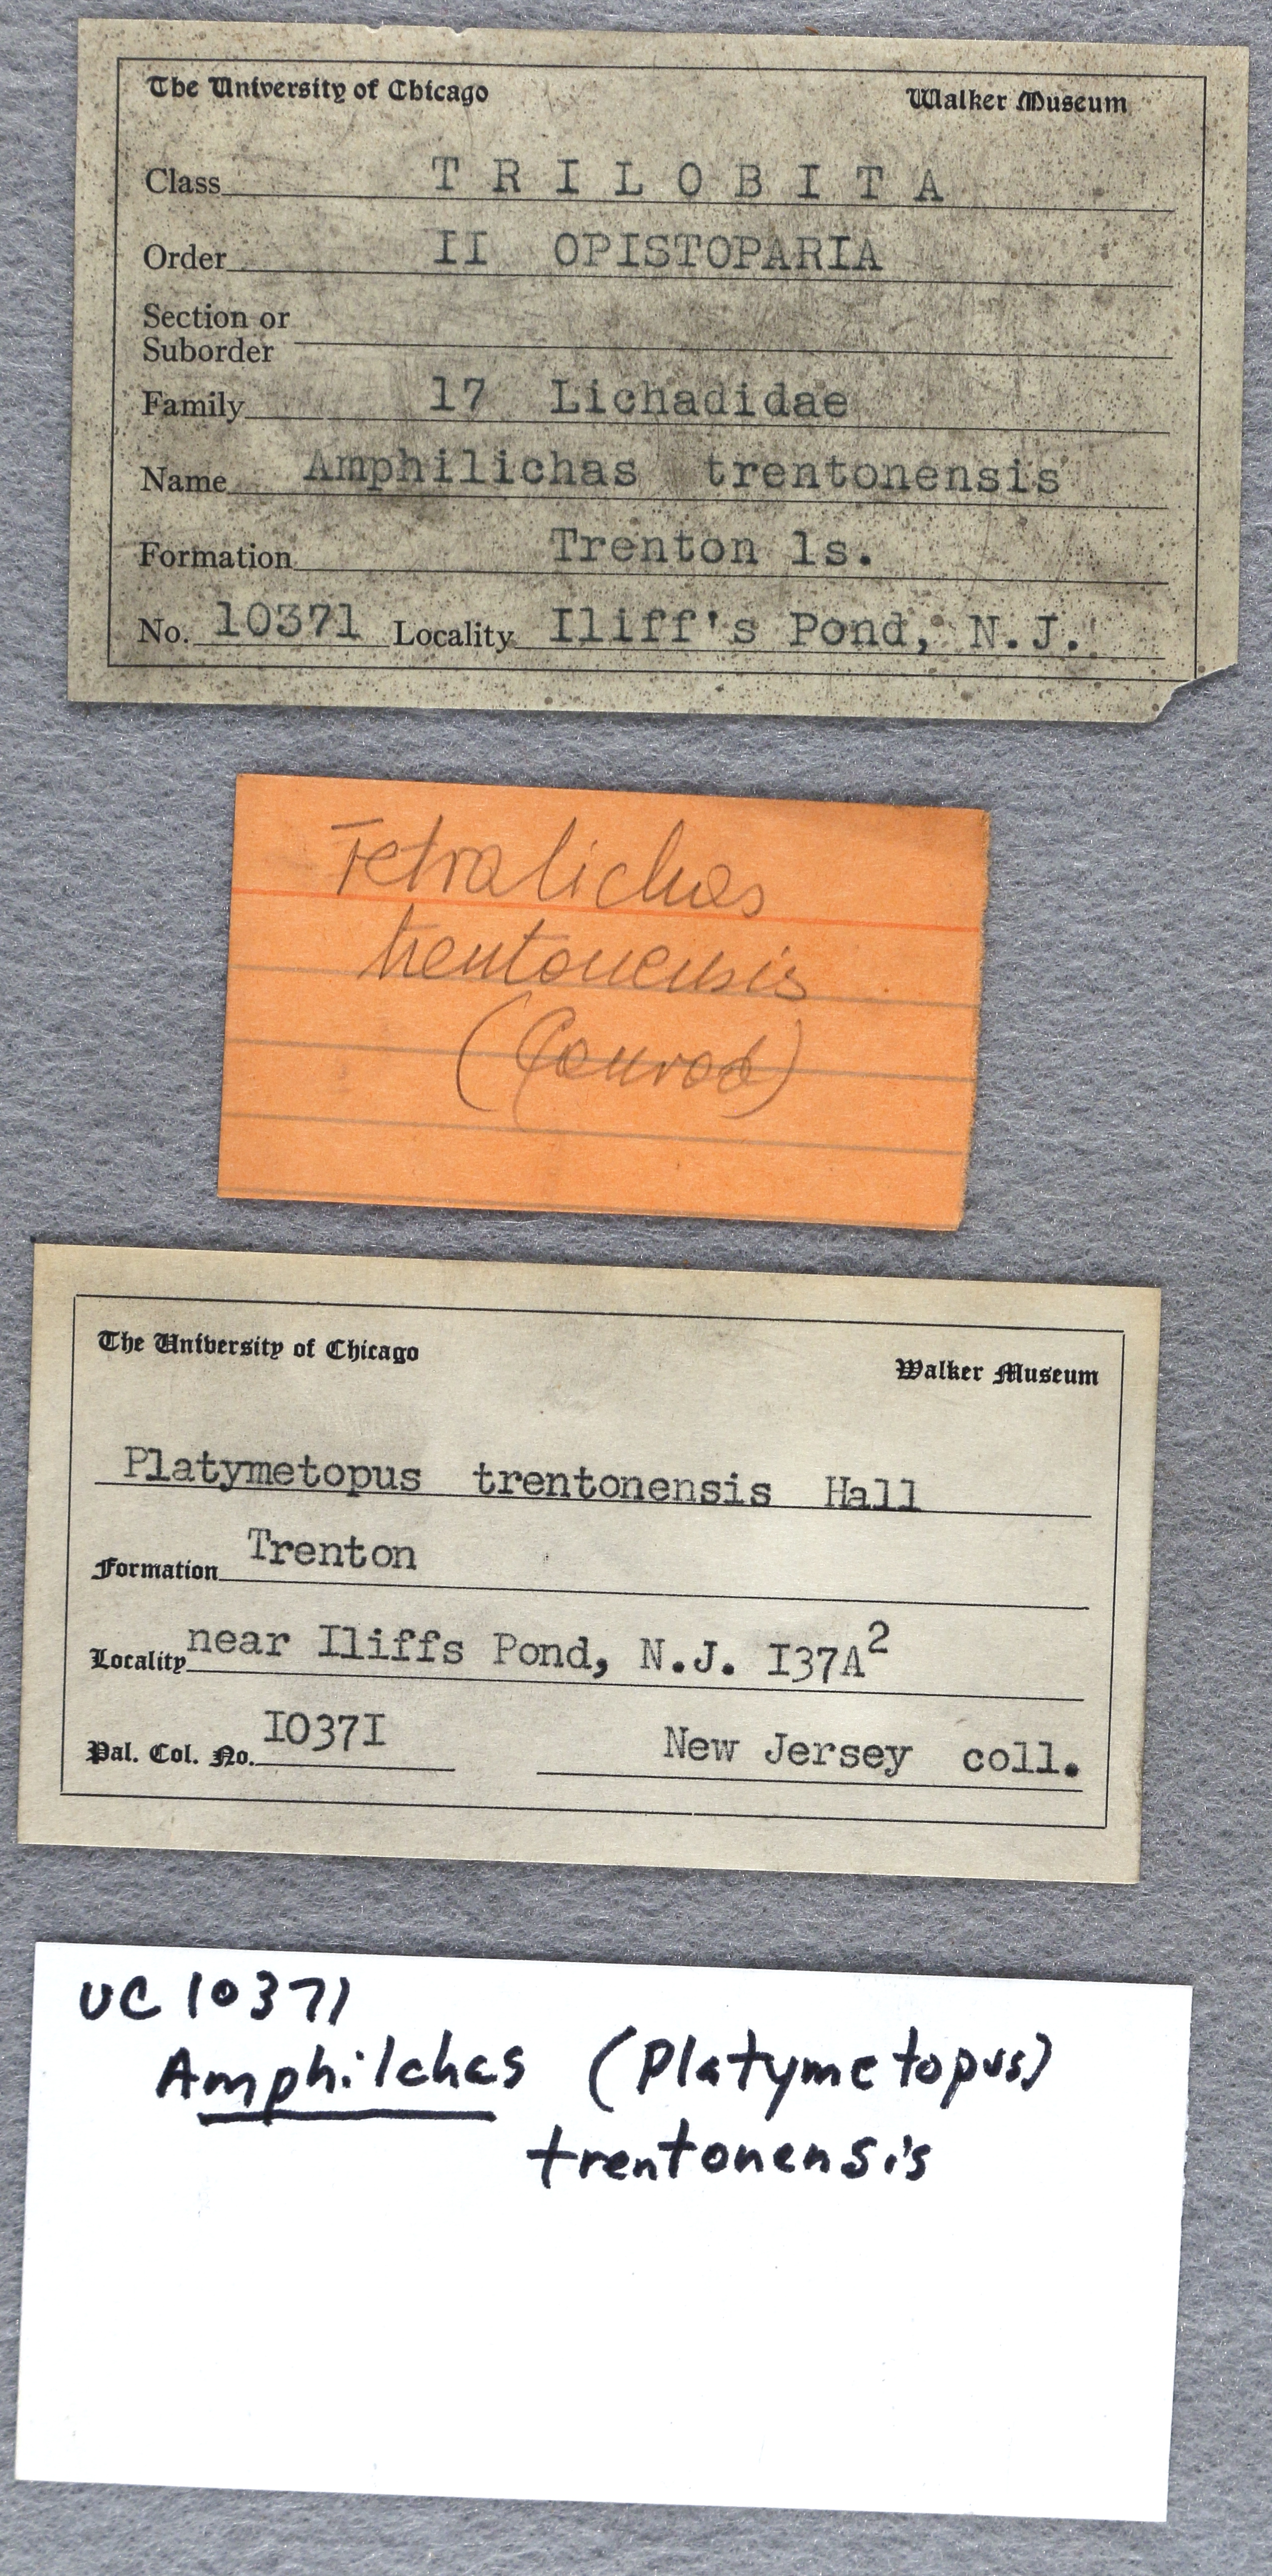 The University of Chicago Walker Museum
Class T R I L O B I T A
Order II OPISTOPARIA
Section or
Suborder
Family 17 Lichadidae
Name Amphilichas trentonensis
Formation Trenton ls.
No. 10371 Locality Iliff's Pond, N.J.
Tetralichas
trentonensis
(Conrad)
The University of Chicago Walker Museum
Platymetopus trentonensis Hall
Formation Trenton
Locality near Iliffs Pond, N.J. I37A²
Pal. Col. No. I037I New Jersey coll.
UC 10371
Amphilchas (Platymetopus)
trentonensis